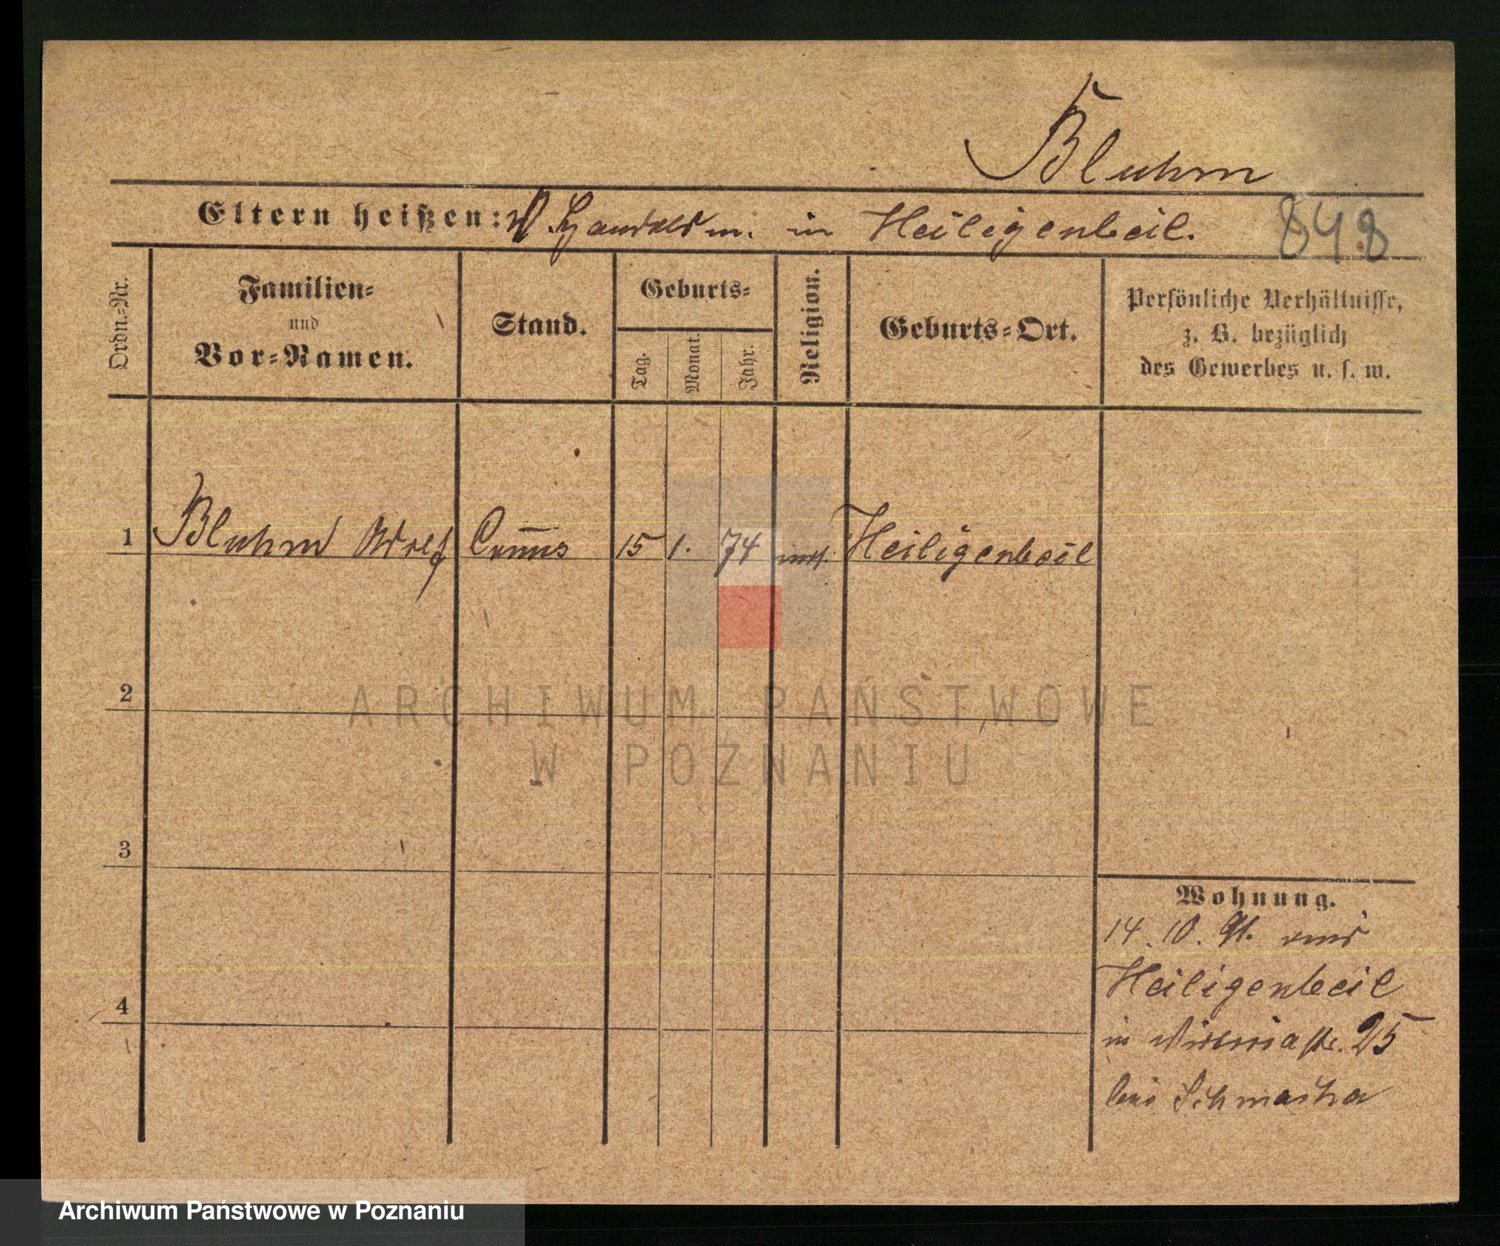 Bluhm
Eltern heißen: Handelsm. in Heiligenbeil. 848
Ordn.-Nr.
Familien-
und
Vor-Namen.
Stand.
Geburts-
Tag.
Monat.
Jahr.
Religion.
Geburts-Ort.
Persönliche Verhältnisse,
z. B. bezüglich
des Gewerbes u. s. w.
1 Bluhm Adolf Commis 15 1. 74 Heiligenbeil
2
3
4
Wohnung.
14. 10. 91. aus
Heiligenbeil
in 25
bei
ARCHIWUM PAŃSTWOWE
W POZNANIU
Archiwum Państwowe w Poznaniu